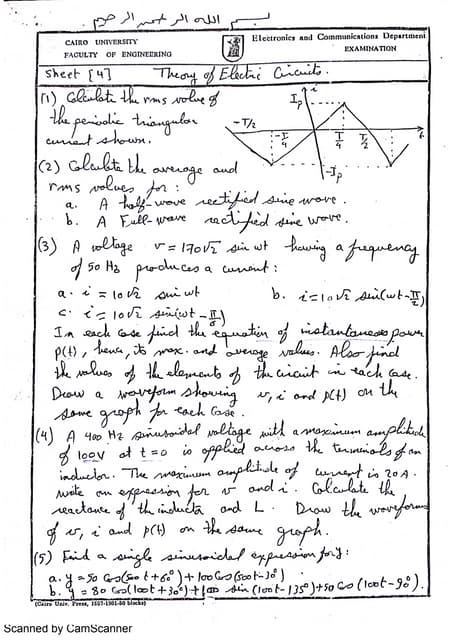 بسم الله الرحمن الرحيم
CAIRO UNIVERSITY
FACULTY OF ENGINEERING
Electronics and Communications Department
EXAMINATION
Sheet [4] Theory of Electric Circuits.
(1) Calculate the rms value of
the periodic triangular
current shown.
i
Ip
-T/2
-T/4
T/4
T/2
t
-Ip
(2) Calculate the average and
rms values for :
a. A half-wave rectified sine wave.
b. A Full-wave rectified sine wave.
(3) A voltage v = 170√2 sin wt having a frequency
of 50 Hz produces a current :
a. i = 10√2 sin wt b. i = 10√2 sin(wt - π/2)
c. i = 10√2 sin(wt - π/6)
In each case find the equation of instantaneous power
p(t), hence, its max. and average values. Also find
the values of the elements of the circuit in each case.
Draw a waveform showing v, i and p(t) on the
same graph for each case.
(4) A 400 Hz sinusoidal voltage with a maximum amplitude
of 100V at t=0 is applied across the terminals of an
inductor. The maximum amplitude of current is 20A.
write an expression for v and i. Calculate the
reactance of th inductor and L. Draw the waveforms
of v, i and p(t) on the same graph.
(5) Find a single sinusoidal expression for y:
a. y = 50 Cos(500t+60°) + 100 Cos(500t-30°)
b. y = 80 Cos(100t+30°) + 100 sin(100t-135°) + 50 Cos(100t-90°).
(Cairo Univ. Press, 1557-1981-80 blocks)
Scanned by CamScanner